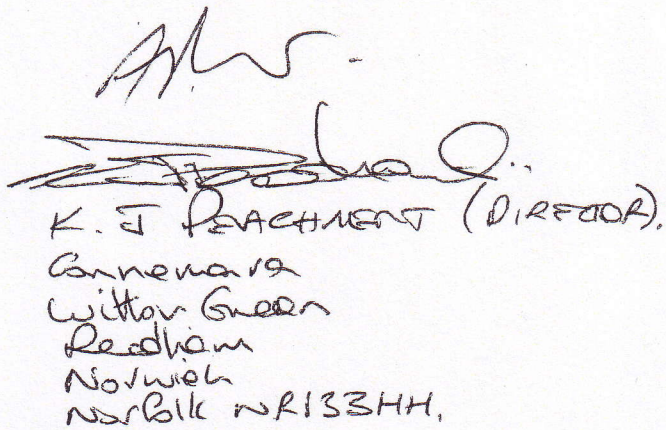 K. J PEACHMENT (DIRECTOR).
Connemara
Witton Green
Reedham
Norwich
Norfolk NR133HH.